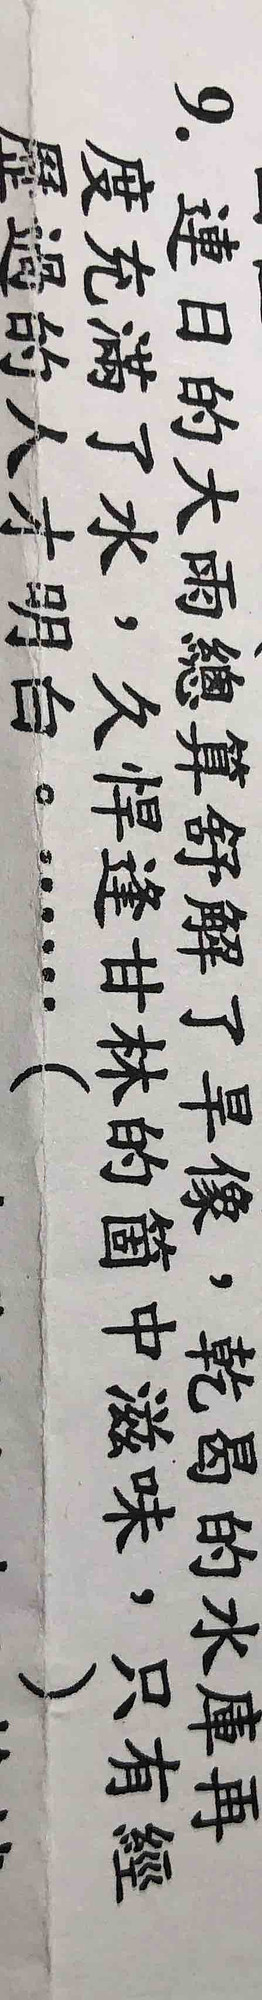 9. 連日的大雨總算舒解了旱像，乾曷的水庫再
度充滿了水，久悍逢甘林的箇中滋味，只有經
歷過的人才明白。……（　　）